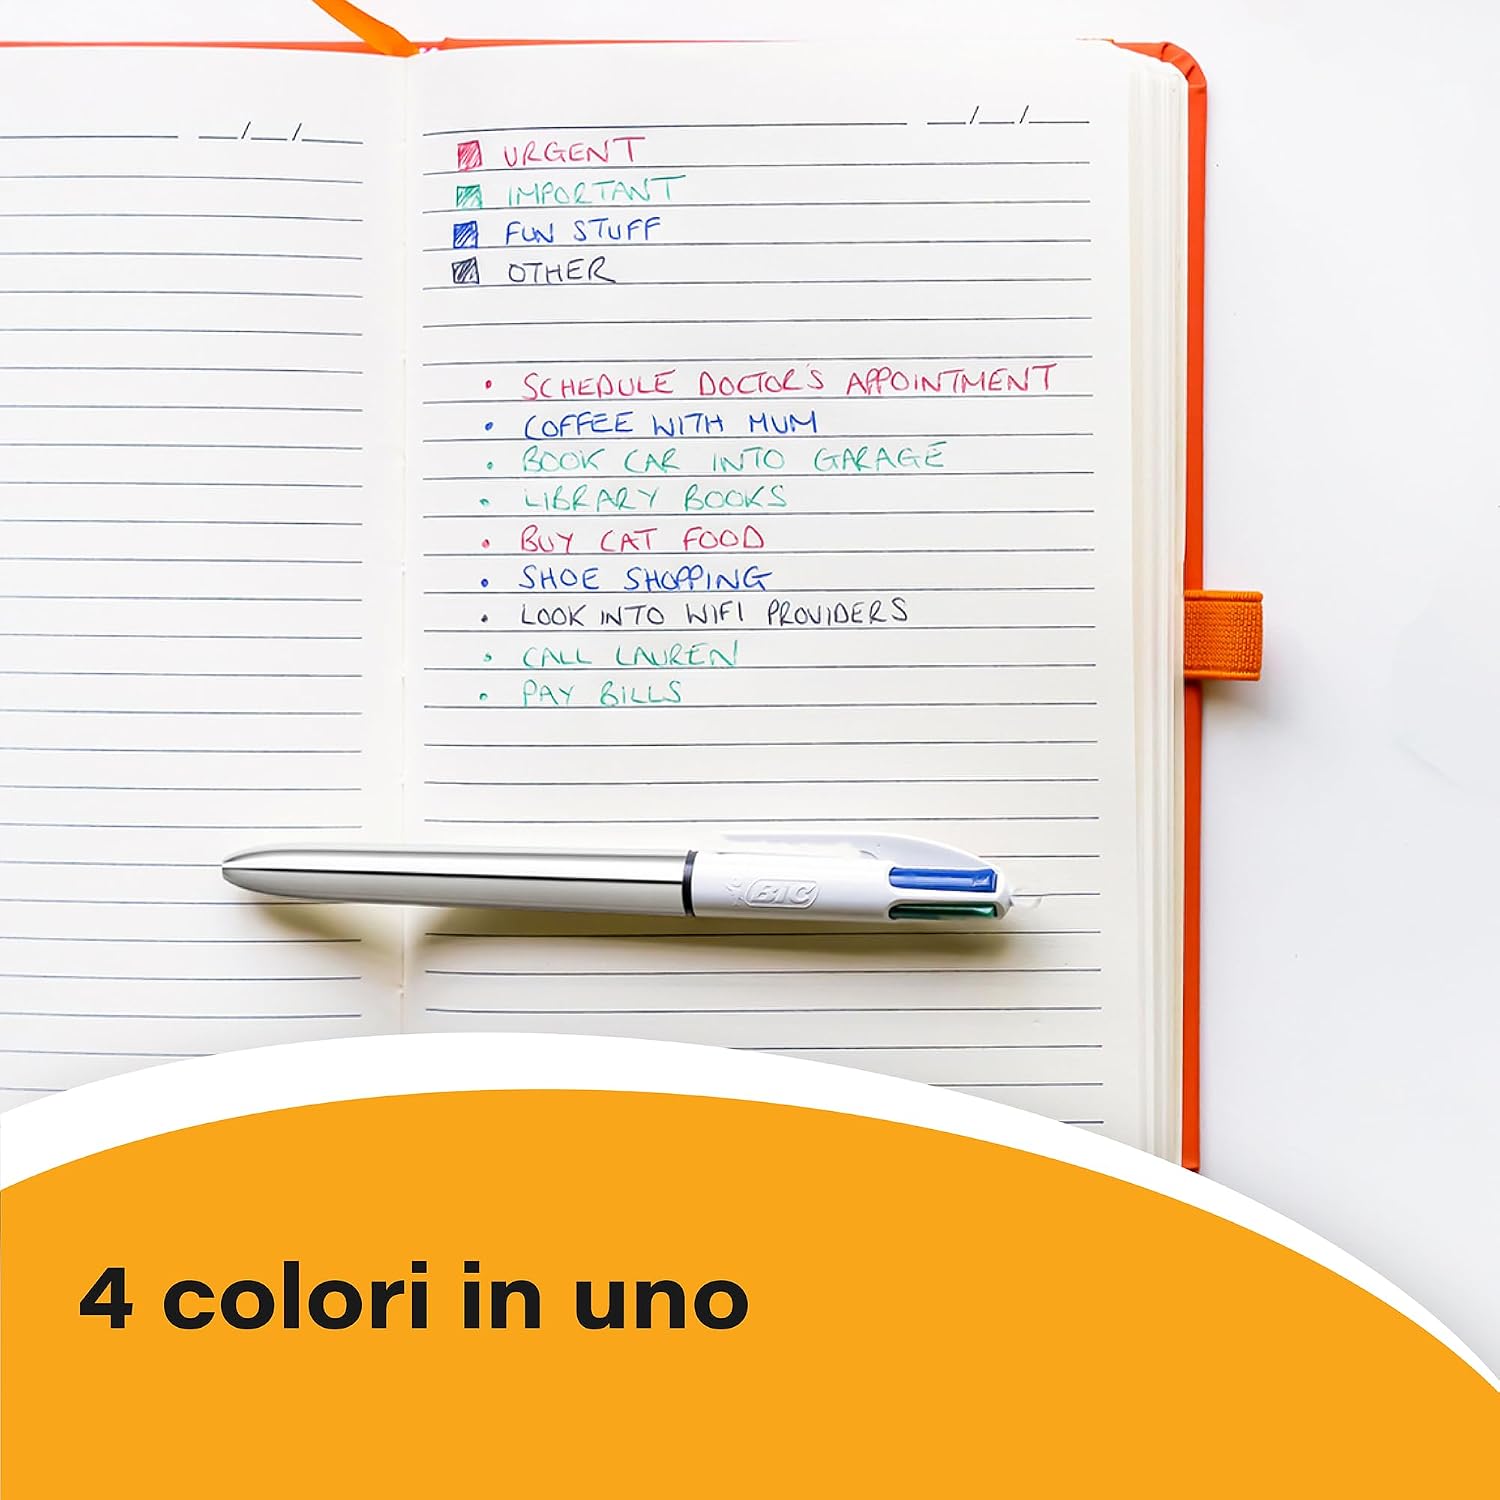 __/__/__
__/__/__
URGENT
IMPORTANT
FUN STUFF
OTHER
• SCHEDULE DOCTOR'S APPOINTMENT
• COFFEE WITH MUM
• BOOK CAR INTO GARAGE
• LIBRARY BOOKS
• BUY CAT FOOD
• SHOE SHOPPING
• LOOK INTO WIFI PROVIDERS
• CALL LAUREN
• PAY BILLS
BIC
4 colori in uno